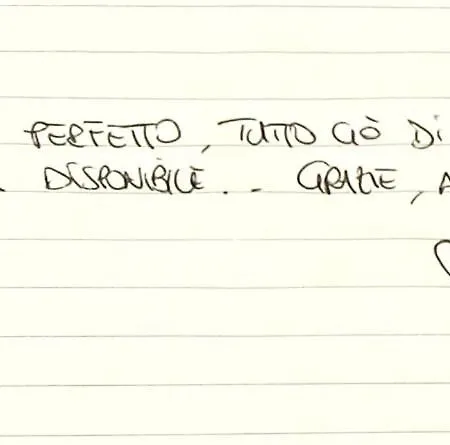 PERFETTO, TUTTO CIÒ DI
DISPONIBILE.. GRAZIE, A